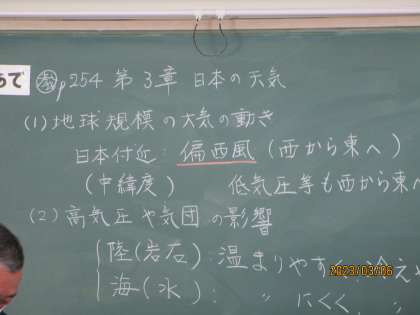 めで
教 p254 第3章 日本の天気
(1) 地球規模の大気の動き
日本付近: 偏西風 (西から東へ)
(中緯度) 低気圧等も西から東へ
(2) 高気圧や気団の影響
陸(岩石): 温まりやすく、冷え
海(水): 〃 にくく、〃
2023/03/06